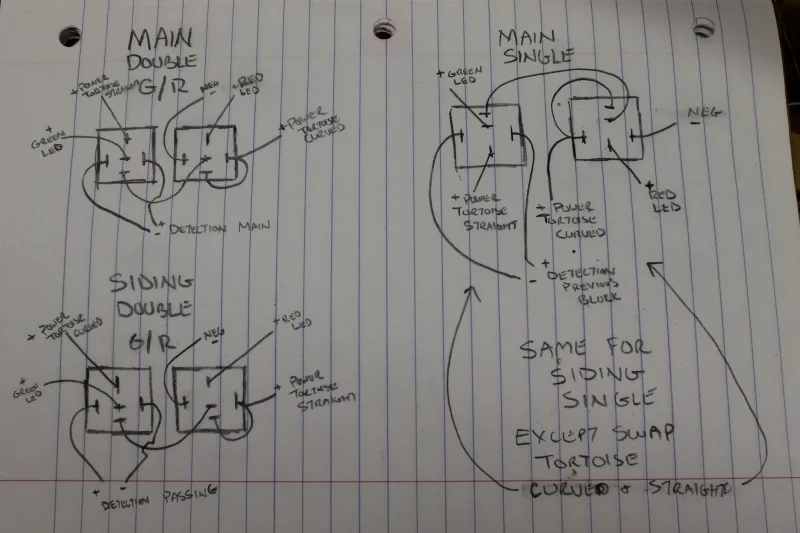 MAIN
DOUBLE
G/R
+ POWER
TORTOISE
STRAIGHT
NEG
-
+ RED
LED
+
GREEN
LED
+ POWER
TORTOISE
CURVED
+
- DETECTION MAIN
MAIN
SINGLE
+ GREEN
LED
NEG
-
+ POWER
TORTOISE
STRAIGHT
+ POWER
TORTOISE
CURVED
+ RED
LED
+
- DETECTION
PREVIOUS
BLOCK
SIDING
DOUBLE
G/R
+ POWER
TORTOISE
CURVED
NEG
-
+ RED
LED
+
GREEN
LED
+ POWER
TORTOISE
STRAIGHT
+ -
DETECTION PASSING
SAME FOR
SIDING
SINGLE
EXCEPT SWAP
TORTOISE
CURVED + STRAIGHT